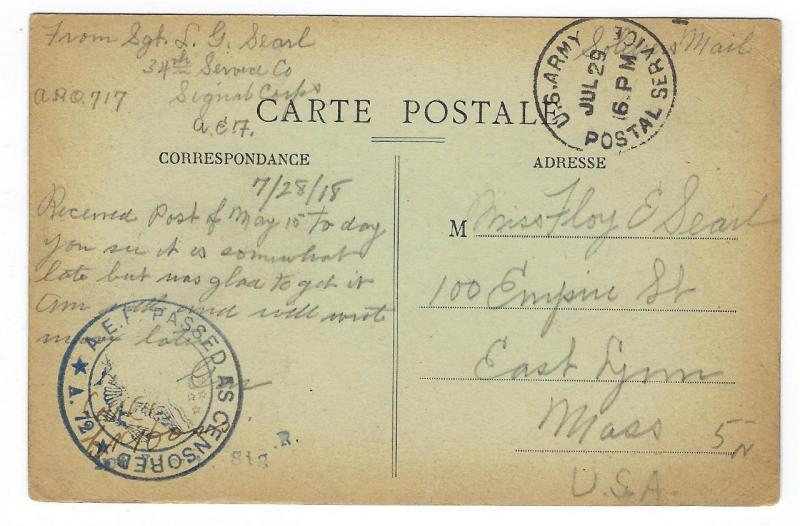 From Sgt. L. G. Searl
34th Service Co
Signal Corps
A.P.O. 717
A.E.F.
Soldiers Mail
U.S. ARMY POSTAL SERVICE
JUL 29
6 PM
CARTE POSTALE
CORRESPONDANCE
7/28/18
Received Post of May 15 to day
you see it is somewhat
late but was glad to get it
Am well and will writ
more late
A.E.F. PASSED AS CENSORED
A. 72
Sig R.
ADRESSE
M Miss Floy E Searl
100 Empire St
East Lynn
Mass
5 N
U.S.A.